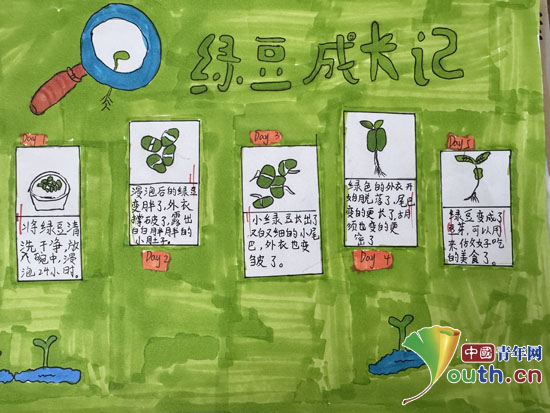 绿豆成长记
Day 1
将绿豆清
洗干净,放
入碗中,浸
泡24小时.
浸泡后的绿豆
变胖了,外衣
撑破了,露出
白白胖胖的
小肚子.
Day 2
Day 3
小绿豆长出了
又白又细的小尾
巴,外衣也变
皱了。
绿色的外衣开
始脱落了,尾巴
变的更长了,胡
须也变的更
密了
Day 4
Day 5
绿豆变成了
豆芽,可以用
来做好吃
的美食了。
中国青年网
Youth.cn